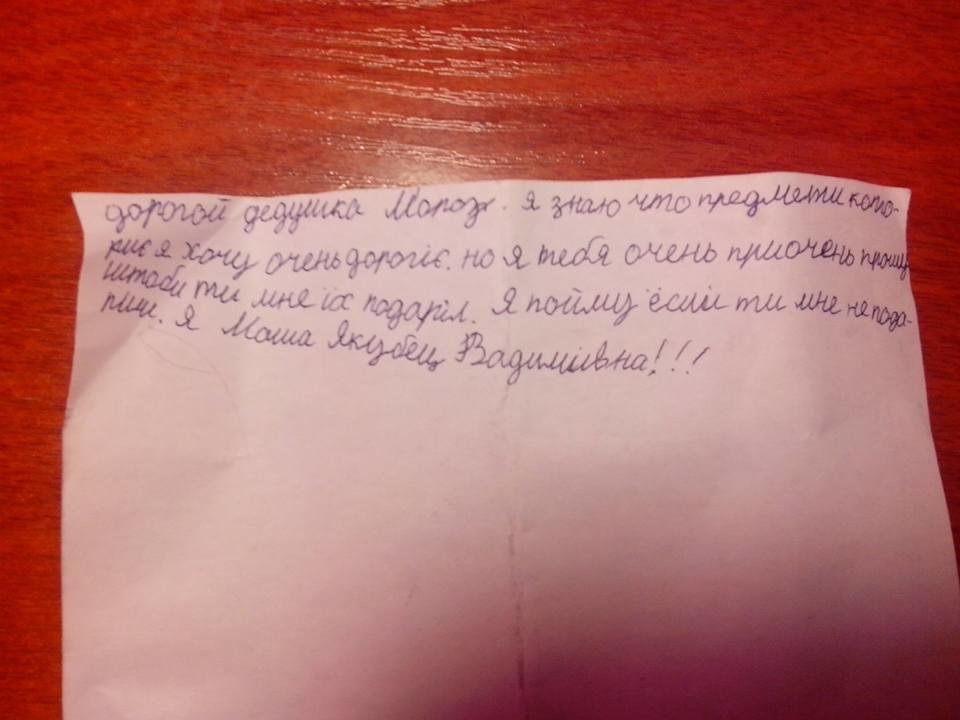 дорогой дедушка Мороз. я знаю что предмети кото-
риє я хочу очень дорогіє. но я тебя очень приочень прошу
штоби ти мне їх подаріл. Я пойму если ти мне не пода-
риш. Я Маша Якубец Вадимівна!!!